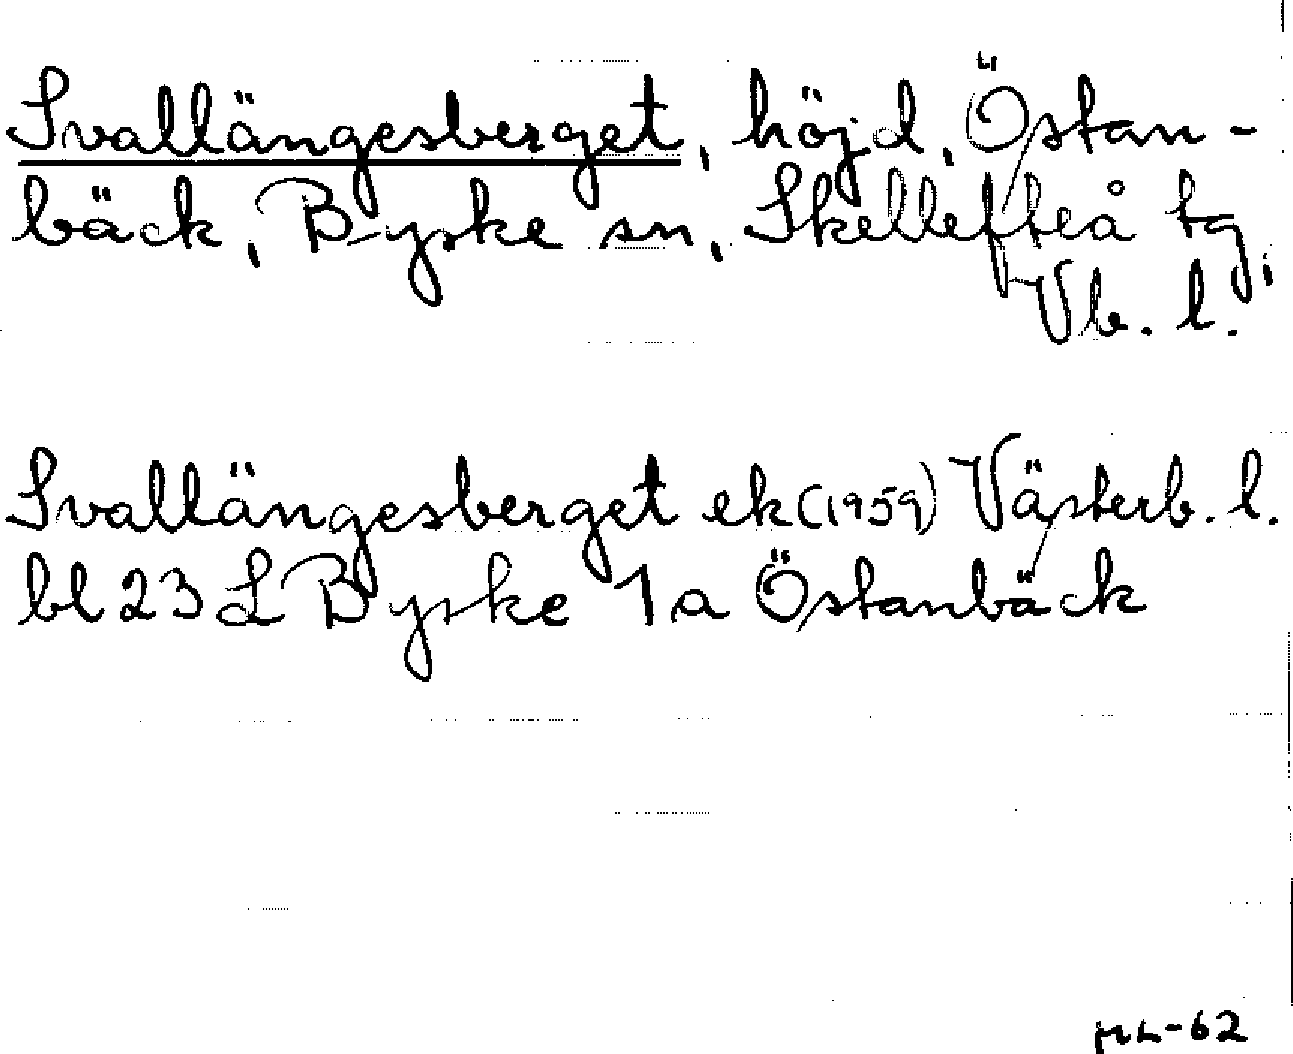 Svallängesberget, höjd, Östan-
bäck, Byske sn, Skellefteå tg,
Vb. l.
Svallängesberget ek (1959) Västerb. l.
bl 23 L Byske 1a Östanbäck
ML-62